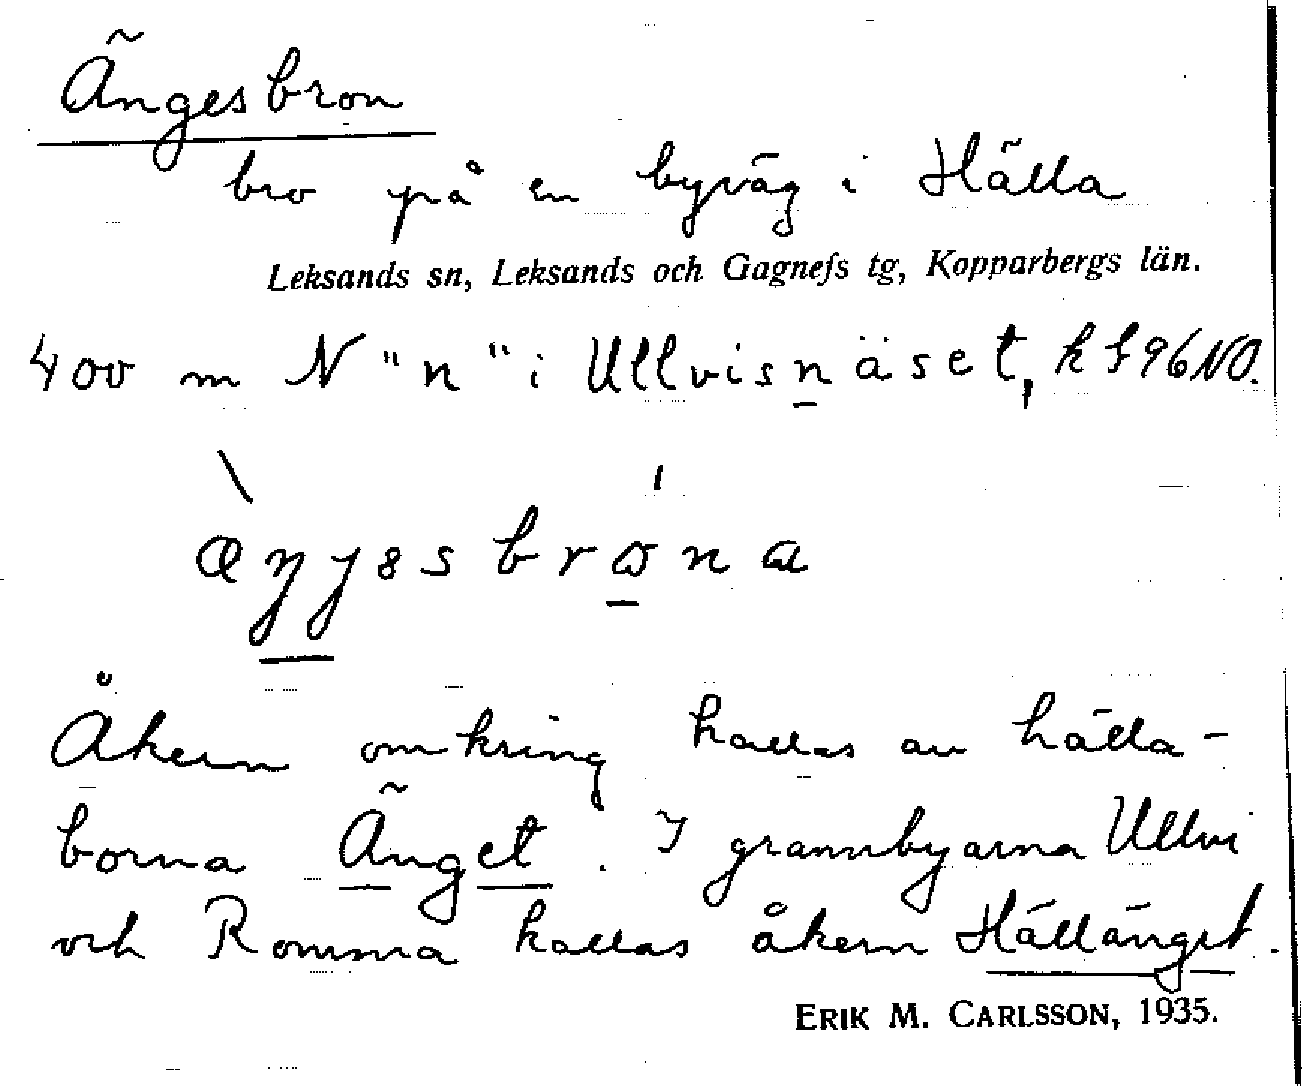 Ängesbron
bro på en byväg i Hälla
Leksands sn, Leksands och Gagnefs tg, Kopparbergs län.
400 m N "n" i Ullvisnäset, k f 96 NO.
æŋɟəsbrona
Åkern omkring kallas av hälla-
borna Änget. I grannbyarna Ullvi
och Romma kallas åkern Hällänget.
ERIK M. CARLSSON, 1935.